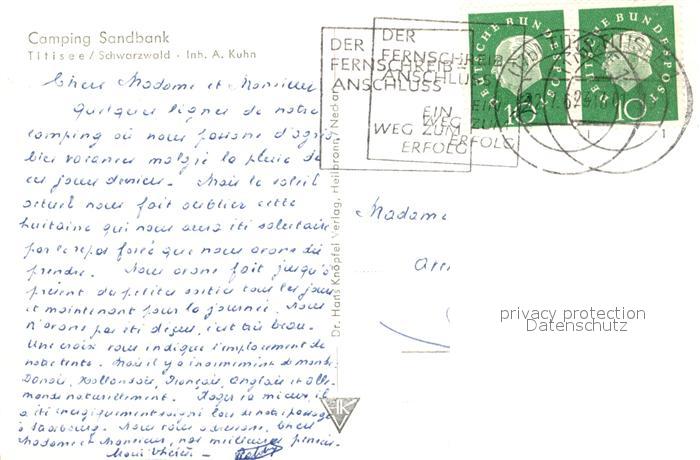 Camping Sandbank
Titisee / Schwarzwald · Inh. A. Kuhn
Chers Madame et Monsieur
Quelques lignes de notre
camping où nous passons d'agré
vacances malgré la pluie de
ces jours derniers. Mais le soleil
actuel nous fait oublier cette
huitaine qui nous aura été salutaire
par le repos forcé que nous avons dû
prendre. Nous avons fait jusqu'à
présent de petites sorties tous les jours
et maintenant pour la journée. Nous
n'avons pas été déçus, c'est très beau.
Une croix vous indique l'emplacement de
notre tente. Mais il y a énormément de monde,
Danois, Hollandais, Français, Anglais et Alle-
mands naturellement. Roger va mieux, il
a été énergiquement soigné lors de notre passage
à Strasbourg. Nous vous adressons, chers
Madame et Monsieur, nos meilleures pensées.
Dr. Hans Knöpfel Verlag, Heilbronn/Neckar
HK
DER
FERNSCHREIB-
ANSCHLUSS
EIN
WEG ZUM
ERFOLG
DER
FERNSCHREIB-
ANSCHLUSS
EIN
WEG ZUM
ERFOLG
DEUTSCHE BUNDESPOST
10
DEUTSCHE BUNDESPOST
10
Madame
privacy protection
Datenschutz